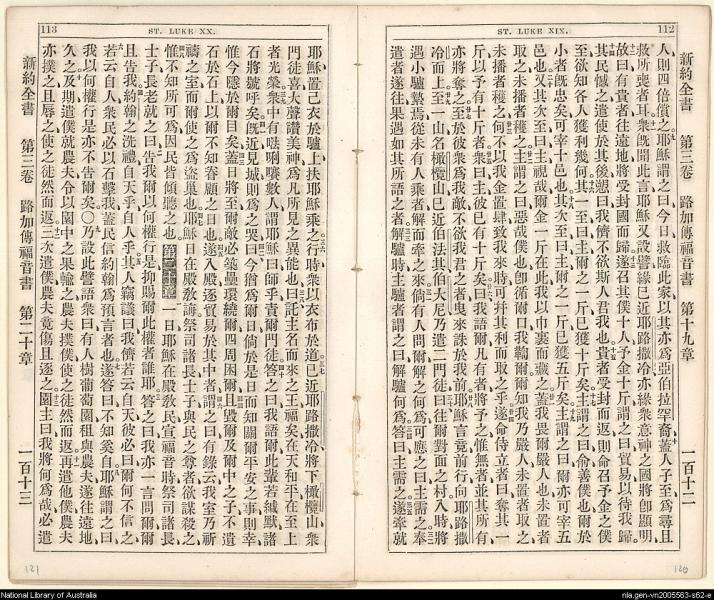 112
ST. LUKE XIX.
新約全書 第三卷 路加傳福音書 第十九章 一百十二
人、則四倍償之、耶穌謂之曰、今日救臨此家、以其亦爲亞伯拉罕裔、蓋人子至、爲尋且
救所喪者耳、衆既聞此言、耶穌又設譬、緣已近耶路撒冷、亦緣衆意神之國將卽顯明、
故曰、有貴者往遠地、將受封國而歸、遂召其僕十人、予金十斤、謂之曰、貿易以待我歸、
其民憾之、遣使於其後、愬曰、我儕不欲斯人君我也、貴者受封而返、則命召予金之僕
至、欲知各人獲利幾何、其一至曰、主、爾之一斤、已獲十斤矣、主謂之曰、俞、善僕也、爾於
小者既忠矣、可宰十邑也、其次至曰、主、爾之一斤、已獲五斤矣、主謂之曰、爾亦可宰五
邑也、又其次至曰、主視哉、爾金一斤在此、我以巾裹而藏之、蓋我畏爾嚴人也、未置者
取之、未播者穫之、主謂之曰、惡哉僕也、卽循爾口鞫爾、爾知我乃嚴人、未置者取之、
未播者穫之、何不以我金置肆、致我來時、可幷其利而取之乎、遂命侍立者曰、奪其一
斤、以予有十斤者、衆曰、主、彼已有十斤矣、曰、我語爾、凡有者將予之、惟無者、並其所有
亦將奪之、至於彼衆爲我敵、不欲我君之者、曳來誅於我前、耶穌言竟、前行、向耶路撒
冷而上、至一山名橄欖山、已近伯法其伯大尼、乃遣二門徒曰、往爾對面之村、入時將
遇小驢縶焉、從未有人乘者、解而牽之來、倘有人問爾、解之何爲、可應之曰、主需之、奉
遣者遂往、果遇如其所語之者、解驢時、主驢者謂之曰、解驢何爲、答曰、主需之、遂牽就
120
113
ST. LUKE XX.
耶穌、置己衣於驢上、扶耶穌乘之、行時、衆以衣布於道、已近耶路撒冷、將下橄欖山、衆
門徒喜、大聲讚美神、爲凡所見之異能也、曰、託主名而來之王福矣、在天和平、在至上
者光榮、衆中有𠵽唎嚽數人謂耶穌曰、師乎、責爾門徒、答之曰、我語爾、此輩若緘默、諸
石將號呼矣、既近、見城則爲之哭曰、今猶爲爾日、倘於是日而知關爾平安之事則幸、
惟今隱於爾目矣、蓋日將至、爾敵必築壘環繞爾、四周困爾、且毀爾及爾中之子、不遺
石於石上、以爾不知眷顧之日也、遂入殿、逐貿易於其中者、謂之曰、有錄云、我室乃祈
禱之室、而爾使之爲盜巢也、耶穌日在殿敎誨、祭司諸長、士子、與民之尊者、欲謀殺之、
惟不知所可爲、因民皆傾聽之也、第二十章 一日耶穌在殿敎民、宣福音時、祭司諸長、
士子、長老就之、曰、告我、爾以何權行是、抑賜爾此權者誰耶、答之曰、我亦一言問爾、爾
且告我、約翰之洗禮、自天乎、自人乎、其人竊議曰、我儕若云自天、彼必曰、爾何不信之、
若云自人、衆民必以石擊我、蓋民信約翰爲預言者也、遂答曰、不知奚自、耶穌謂之曰、
我以何權行是、亦不告爾矣、〇乃設此譬語衆曰、有人樹葡萄園、租與農夫、遂往遠地
久之、及期、遣僕就農夫、令以園中之果輸之、農夫撲僕、使之徒然而返、再遣他僕、農夫
亦撲之、且辱之、使之徒然而返、又三次遣僕、農夫竟傷且逐之、園主曰、我將何爲哉、必遣
新約全書 第三卷 路加傳福音書 第二十章 一百十三
121
National Library of Australia
nla.gen-vn2005563-s62-e